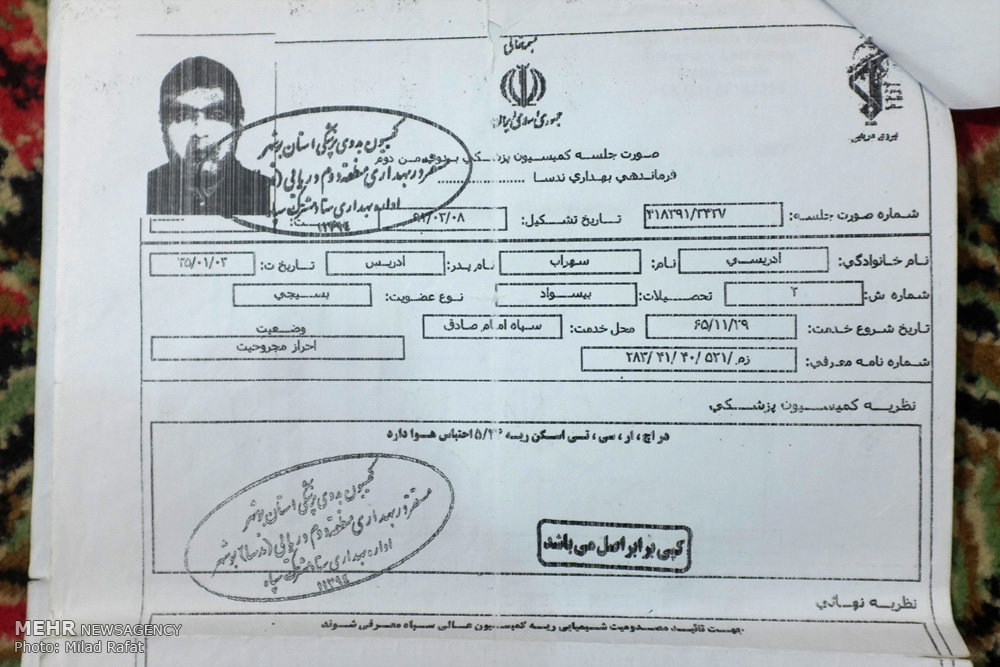 بسمه تعالی
جمهوری اسلامی ایران
نیروی دریایی
صورت جلسه کمیسیون پزشکی
فرماندهي بهداري ندسا
کمیسیون بدوی پزشکی استان بوشهر
مستقر در بهداری منطقه دوم دریایی
اداره بهداری ستاد مشترک سپاه
۱۱۳۹٤
شماره صورت جلسه: ۴۱۸۲۹۱/۲۴۲۷ تاریخ تشکیل: ۹۱/۰۳/۰۸
نام خانوادگي: ادریسي نام: سهراب نام پدر: ادریس تاریخ ت: ۳۵/۰۱/۰۳
شماره ش: ۲ تحصیلات: بیسواد نوع عضویت: بسیجي
تاریخ شروع خدمت: ۶۵/۱۱/۲۹ محل خدمت: سپاه امام صادق وضعیت
شماره نامه معرفي: زم/ ۵۲۱/ ۴۰/ ۴۱/ ۲۸۳ احراز مجروحیت
نظریه کمیسیون پزشکي
در اچ ، ار ، سی ، تی اسکن ریه احتباس هوا دارد
کمیسیون بدوی پزشکی استان بوشهر
مستقر در بهداری منطقه دوم دریایی (ندسا) بوشهر
اداره بهداری ستاد مشترک سپاه
۱۱۳۹٤
کپی برابر اصل می باشد
نظریه نهائي
جهت تائید مصدومیت شیمیایی ریه کمیسیون عالی سپاه معرفی شوند
MEHR NEWSAGENCY
Photo: Milad Rafat